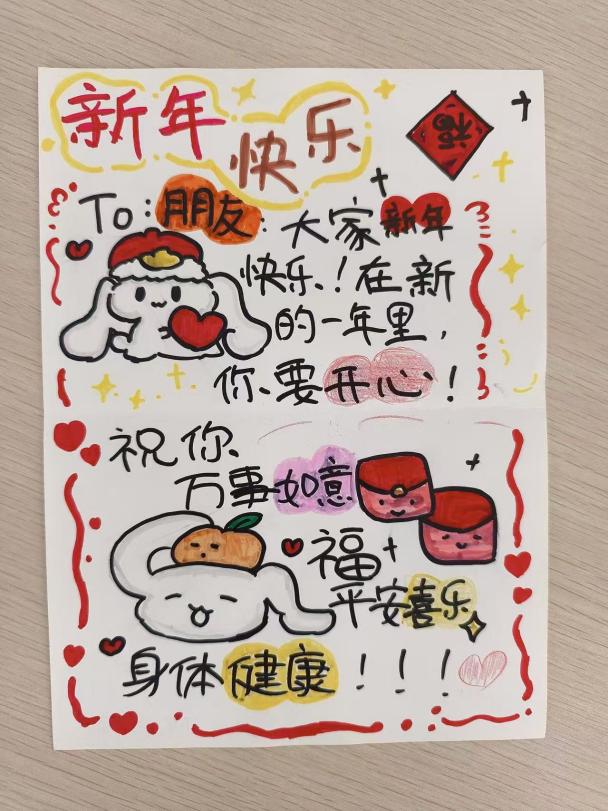 新年
快乐
福
To:朋友:
大家新年
快乐!在新
的一年里,
你要开心!
祝你
万事如意
福
平安喜乐
身体健康!!!